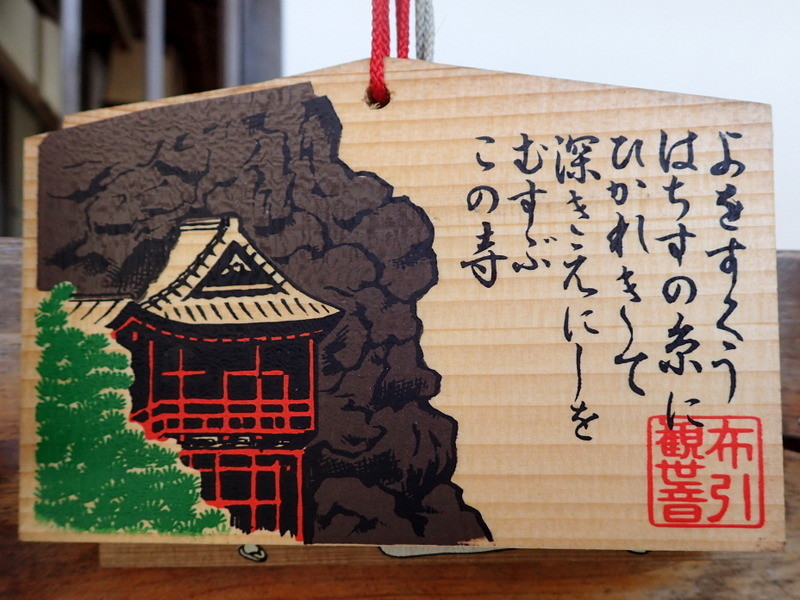 よをすくう
はちすの糸に
ひかれきて
深きえにしを
むすぶ
この寺
布引
観世音